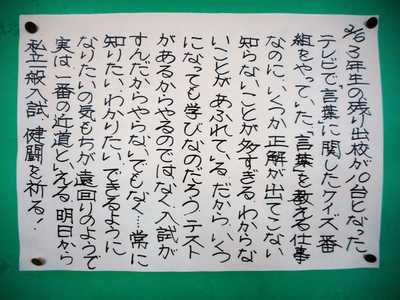 2/6 3年生の残り出校が10台となった。
テレビで「言葉」に関したクイズ番
組をやっていた。「言葉」を教える仕事
なのに、いくつか正解が出てこない
知らないことが多すぎる、わからな
いことがあふれている。だから、いくつ
になっても学びなのだろう。テスト
があるからやるのではなく、入試が
すんだからやらないでもなく…常に
知りたい、わかりたい、できるように
なりたいの気もちが遠回りのようで
実は一番の近道といえる。明日から
私立一般入試、健闘を祈る!